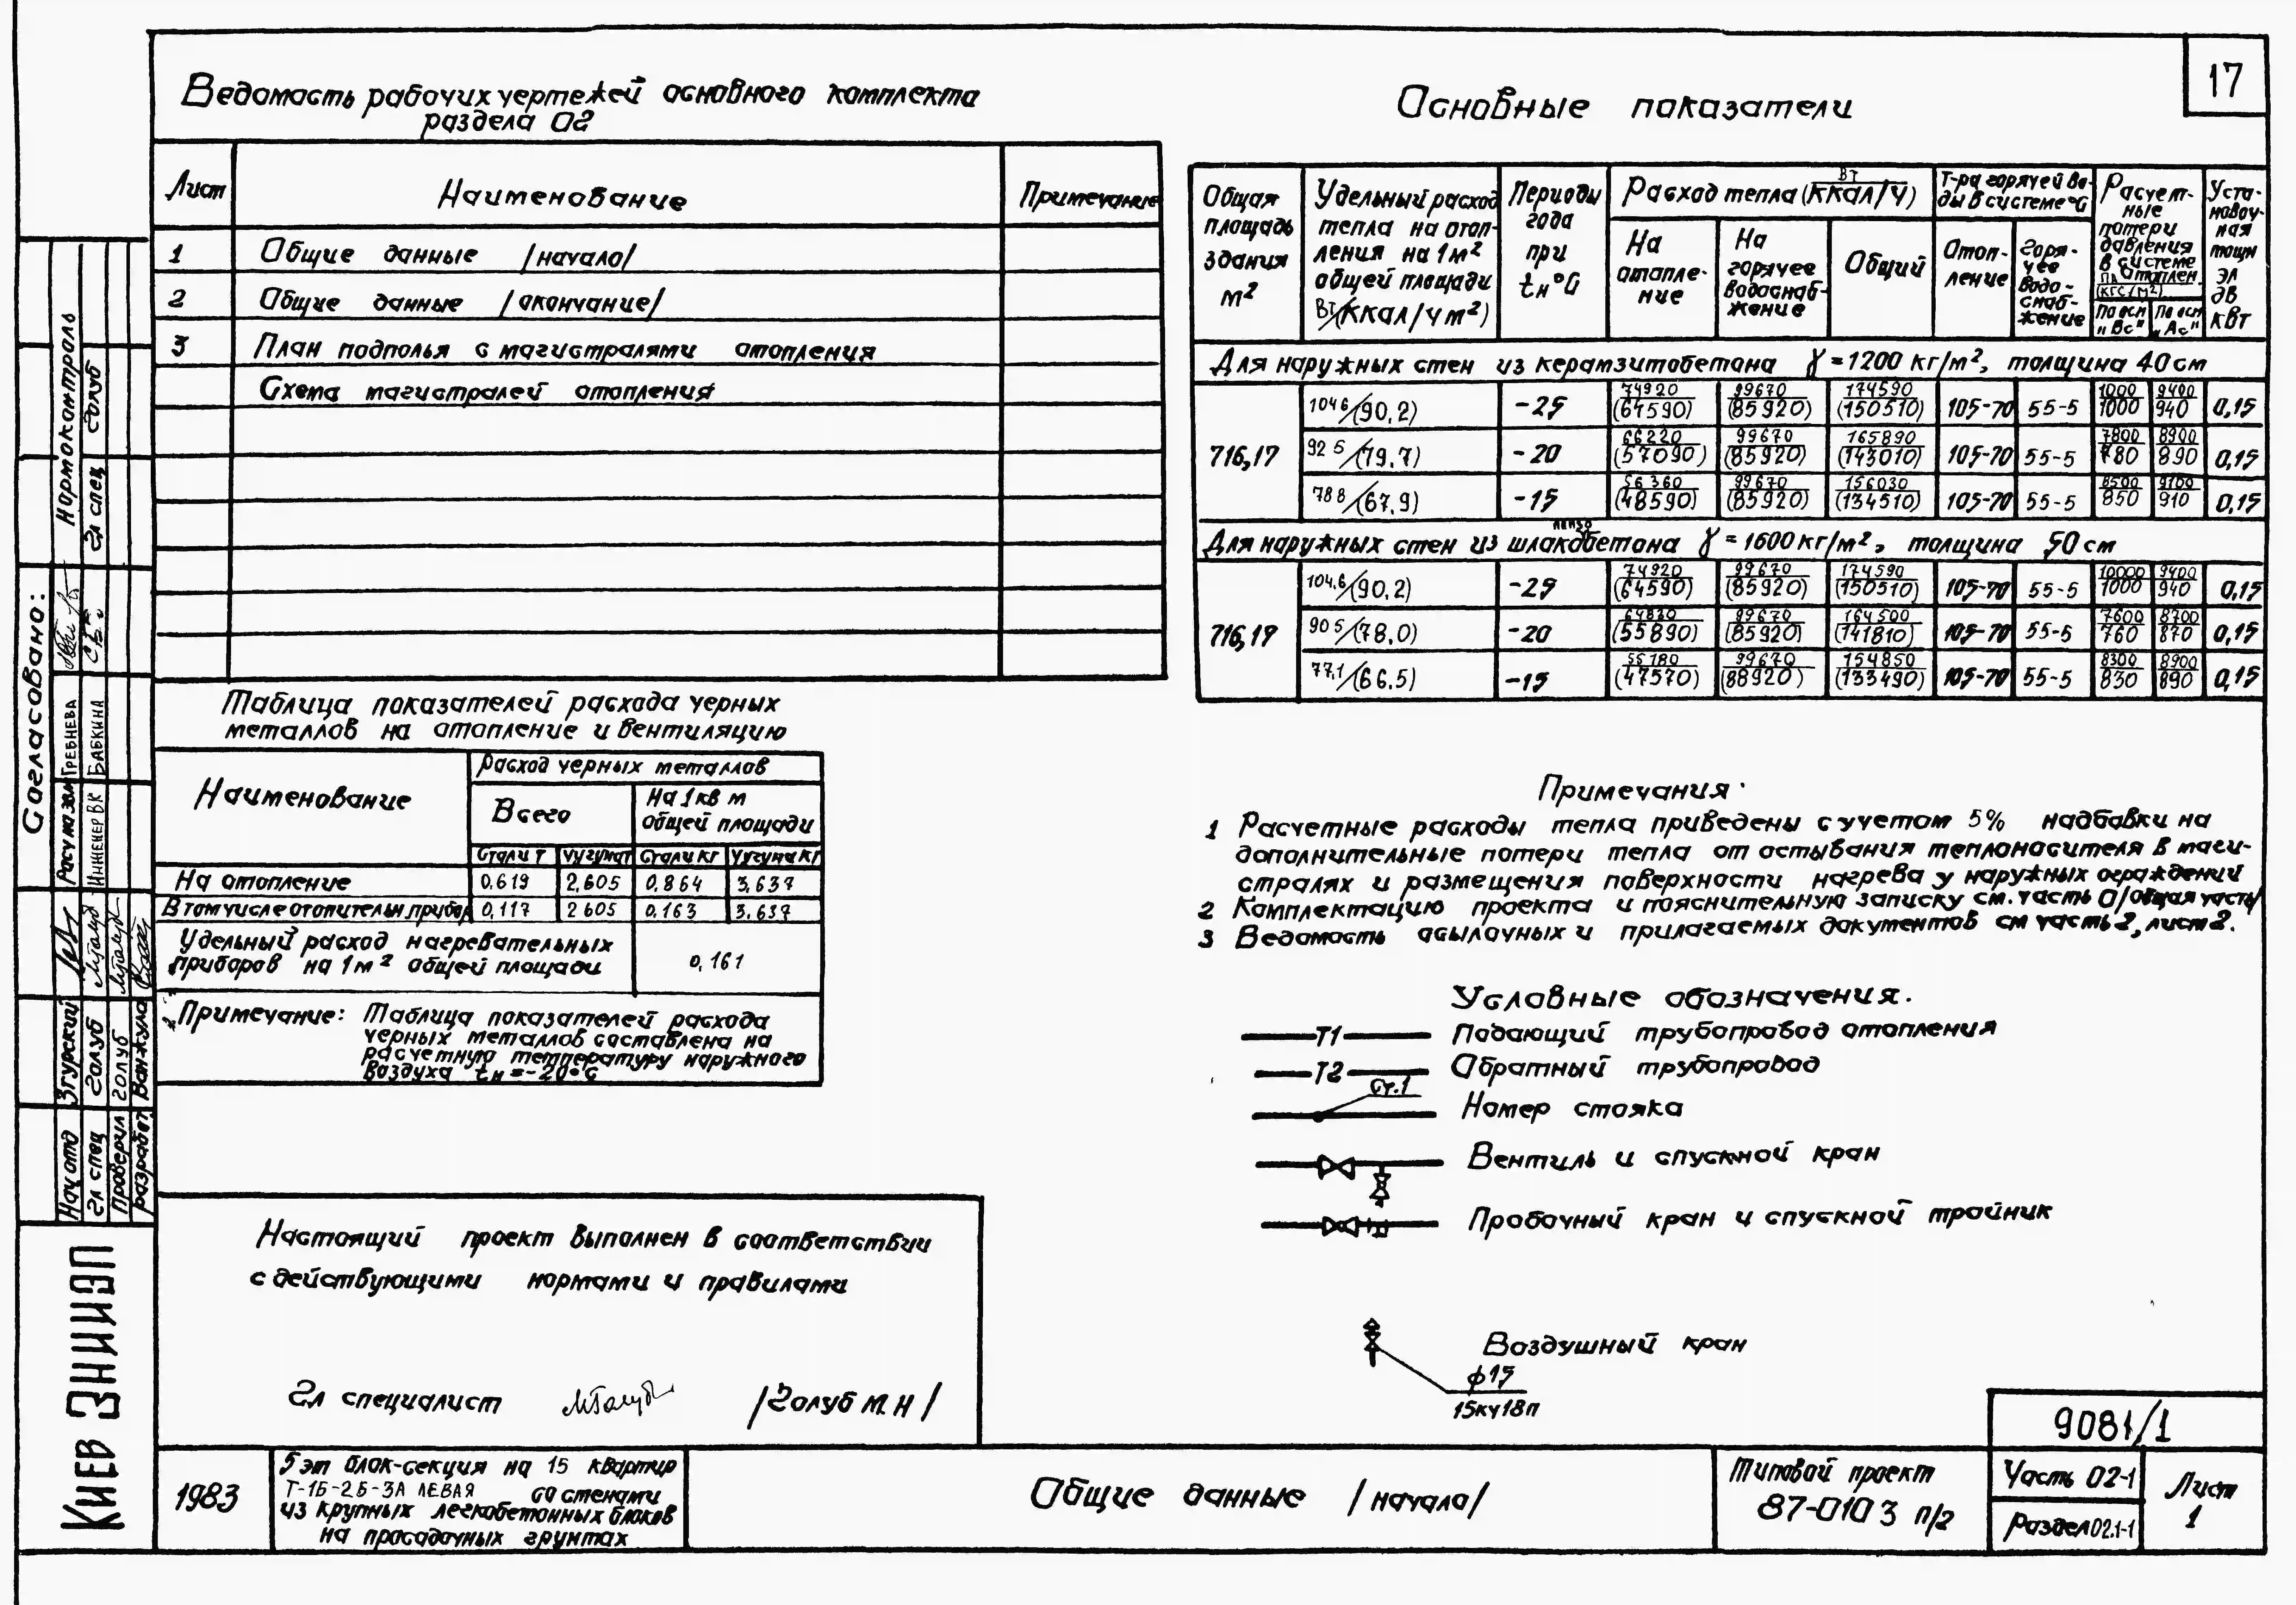 17
Ведомость рабочих чертежей основного комплекта
раздела 02
Лист
Наименование
Примечание
1 Общие данные /начало/
2 Общие данные /окончание/
3 План подполья с магистралями отопления
Схема магистралей отопления
Основные показатели
Общая площадь здания м2
Удельный расход тепла на отопления на 1м2 общей площади Вт/(ккал/чм2)
Периоды года при tн°С
Расход тепла (Вт/ккал/ч)
На отопление
На горячее водоснабжение
Общий
Т-ра горячей воды в системе °С
Отопление
Горячее водоснабжение
Расчетные потери давления в системе отоплен. Па (кгс/м2)
По осн "Вс"
По осн "Ас"
Установочная мощн эл дв квт
Для наружных стен из керамзитобетона γ=1200 кг/м2, толщина 40 см
716,17
104 6/(90.2) -25 74920 (64590) 99670 (85920) 174590 (150510) 105-70 55-5 1000 1000 9400 940 0,15
92 5/(79.7) -20 66220 (57090) 99670 (85920) 165890 (143010) 105-70 55-5 7800 780 8900 890 0,15
78 8/(67.9) -15 56360 (48590) 99670 (85920) 156030 (134510) 105-70 55-5 8500 850 9100 910 0,15
Для наружных стен из шлакопемзобетона γ=1600 кг/м2, толщина 50 см
716,17
104,6/(90.2) -25 74920 (64590) 99670 (85920) 174590 (150510) 105-70 55-5 10000 1000 9400 940 0,15
90 5/(78.0) -20 64830 (55890) 99670 (85920) 164500 (141810) 105-70 55-5 7600 760 8700 870 0,15
77,1/(66.5) -15 55180 (47570) 99670 (88920) 154850 (133490) 105-70 55-5 8300 830 8900 890 0,15
Таблица показателей расхода черных
металлов на отопление и вентиляцию
Наименование
Расход черных металлов
Всего
На 1 кв м
общей площади
Стали т Чугуна т Стали кг Чугуна кг
На отопление 0.619 2.605 0.864 3.637
В том числе отопительн. прибор 0.117 2 605 0.163 3.637
Удельный расход нагревательных
приборов на 1м2 общей площади 0,161
Примечание: Таблица показателей расхода
черных металлов составлена на
расчетную температуру наружного
воздуха tн=-20°С
Примечания
1 Расчетные расходы тепла приведены с учетом 5% надбавки на
дополнительные потери тепла от остывания теплоносителя в маги-
стралях и размещения поверхности нагрева у наружных ограждений
2 Комплектацию проекта и пояснительную записку см. часть 0/общая часть/
3 Ведомость ссылочных и прилагаемых документов см часть 2, лист 2.
Условные обозначения.
Т1 Подающий трубопровод отопления
Т2 Обратный трубопровод
Ст.1 Номер стояка
Вентиль и спускной кран
Пробочный кран и спускной тройник
Воздушный кран
ф15
15кч18п
Настоящий проект выполнен в соответствии
с действующими нормами и правилами
Гл специалист /Голуб М.Н/
Согласовано:
Нормоконтроль
Гл спец Голуб
Гребнева
Инженер ВК Бабкина
Нач отд Згурский
Гл спец Голуб
Проверил Голуб
Разработ Ванжула
Киев ЗНИИЭП
1983
5 эт блок-секция на 15 квартир
Т-1Б-2Б-3А ЛЕВАЯ со стенами
из крупных легкобетонных блоков
на просадочных грунтах
Общие данные /начало/
Типовой проект
87-010 3 п/2
9081/1
Часть 02-1
Раздел 02.1-1
Лист
1